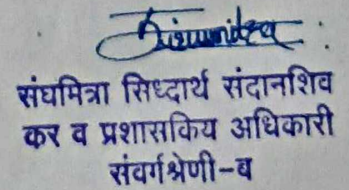 संघमित्रा सिध्दार्थ संदानशिव
कर व प्रशासकिय अधिकारी
संवर्गश्रेणी-ब